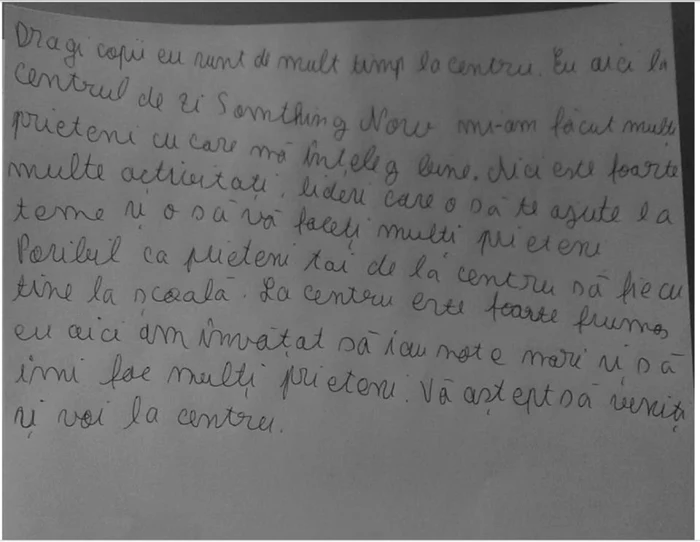 Dragi copii eu sunt de mult timp la centru. Eu aici la
centrul de zi Somthing New mi-am făcut mulți
prieteni cu care mă înțeleg bine. Aici este foarte
multe activitați, lideri care o să te ajute la
teme și o să vă faceți multi prieteni
Posibil ca prieteni tai de la centru să fie cu
tine la școală. La centru este foarte frumos
eu aici am învațat să iau note mari și să
imi fac mulți prieteni. Vă aștept să veniți
și voi la centru.